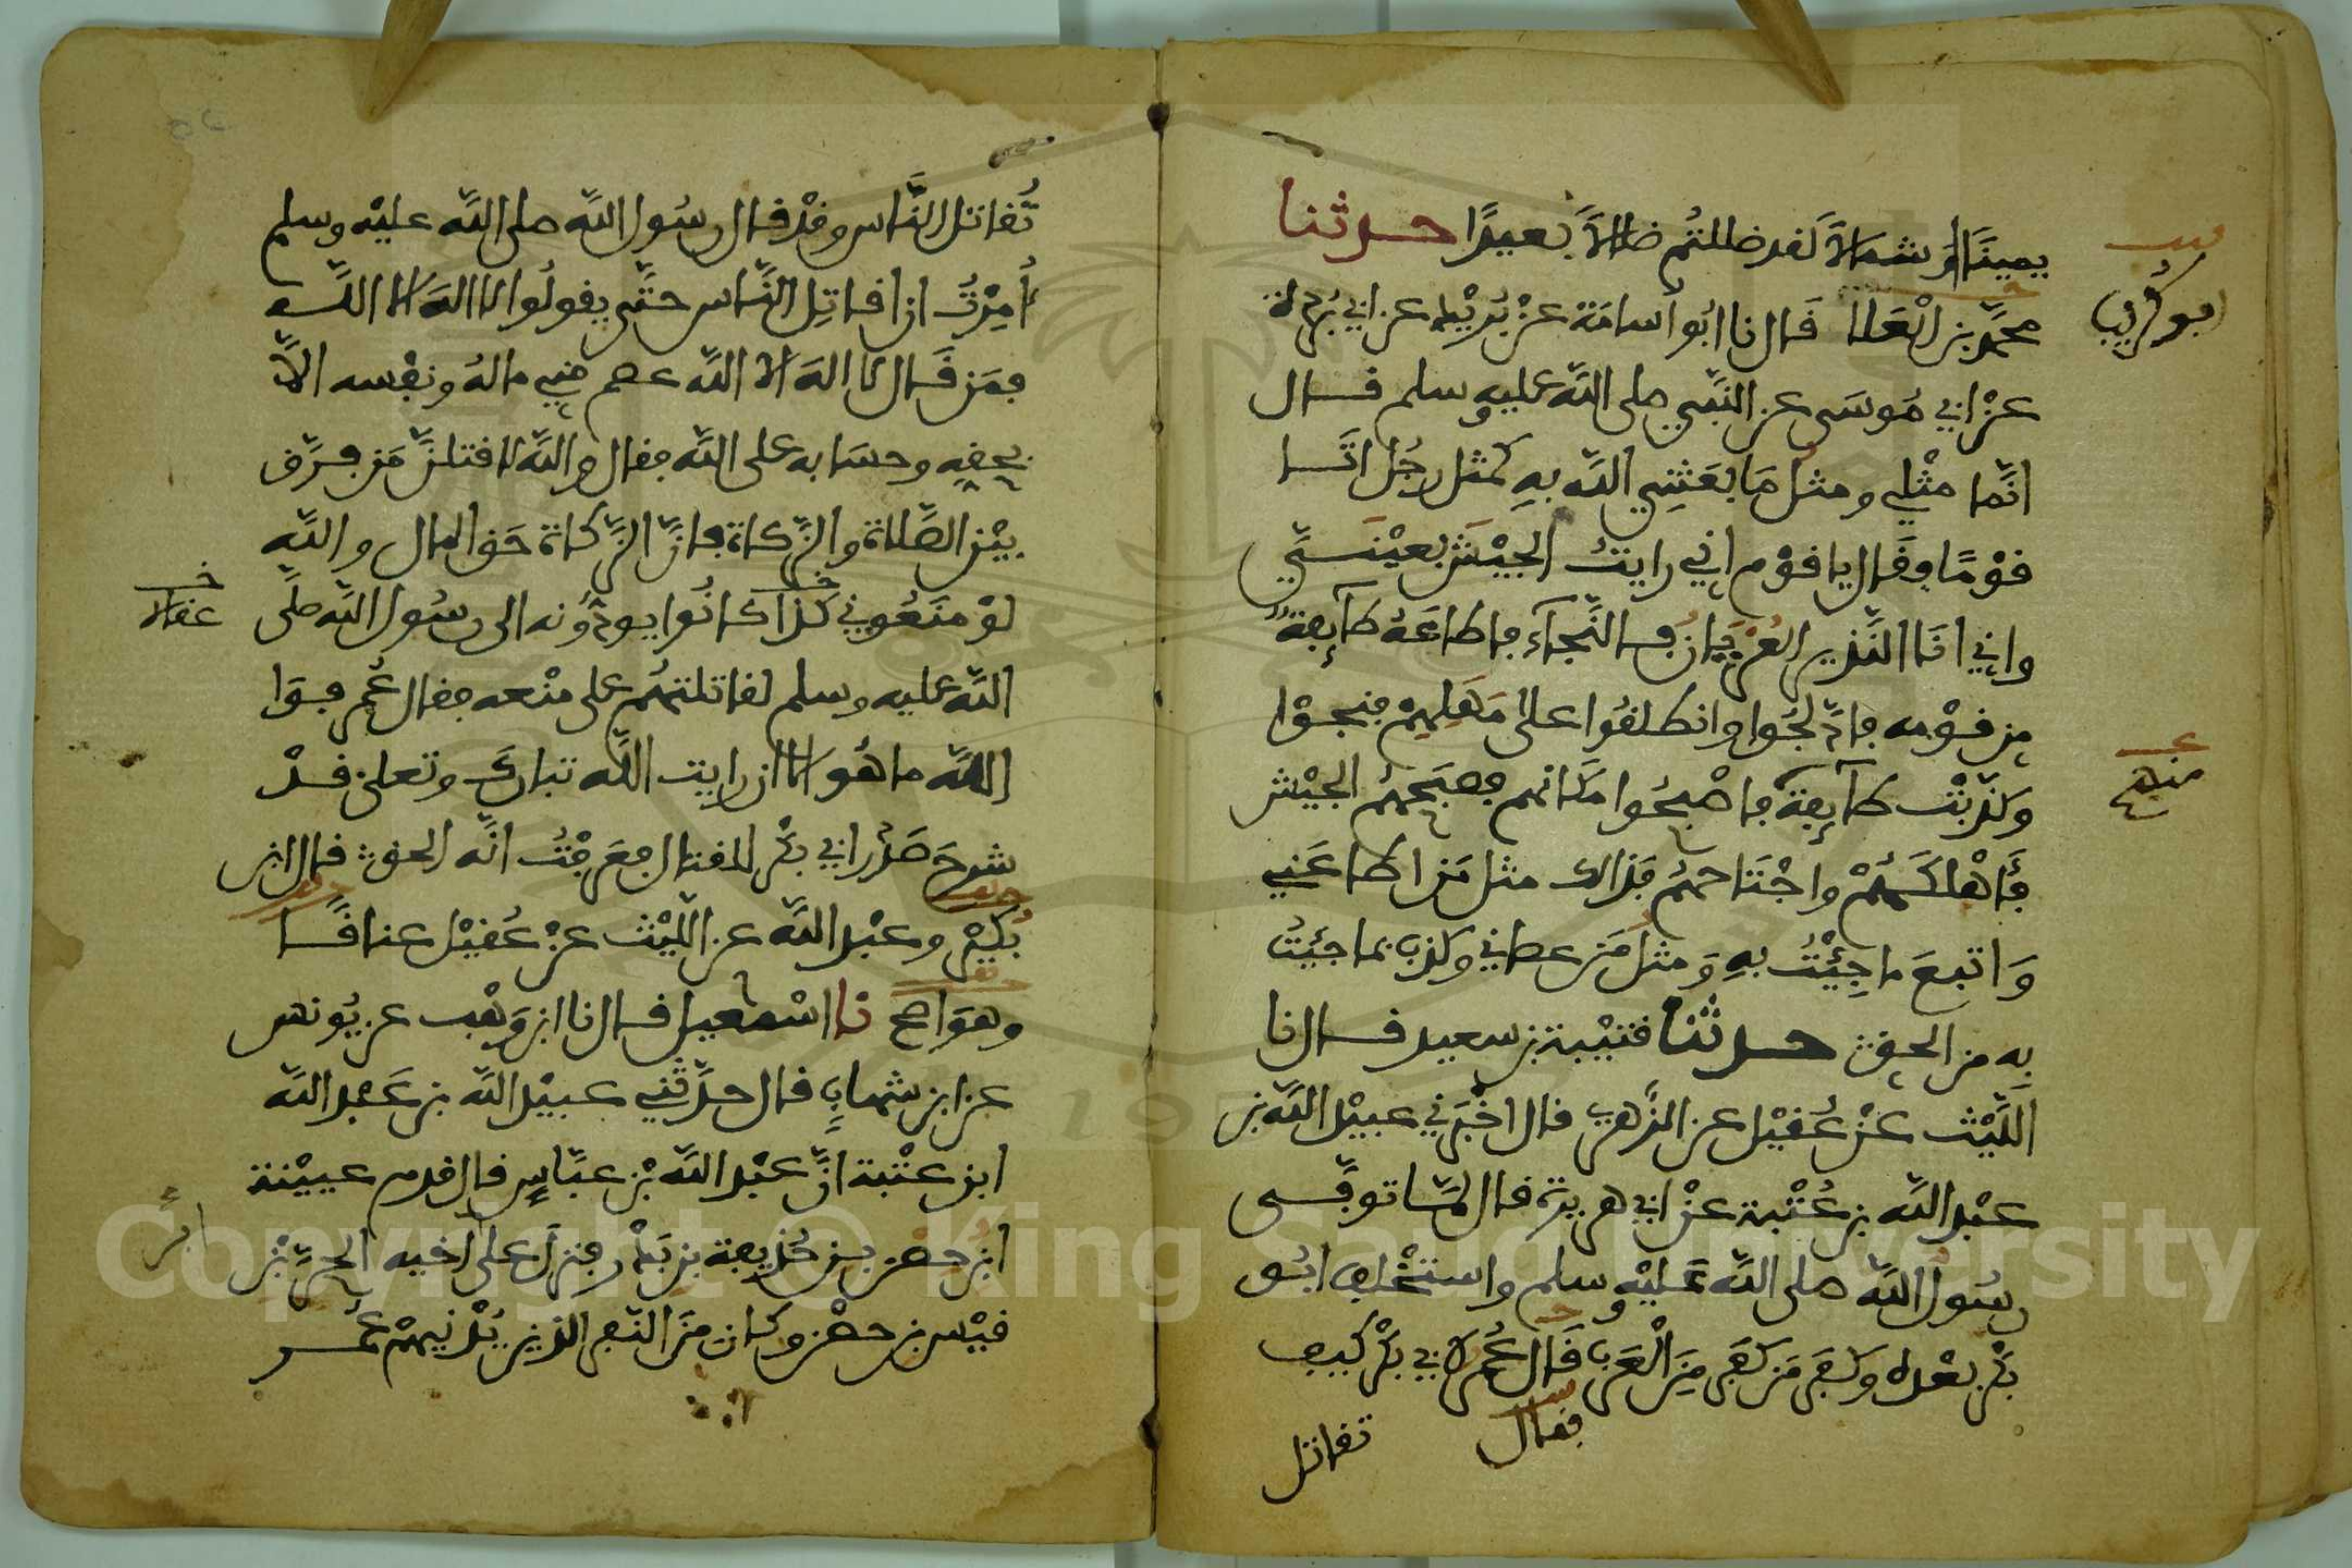 يمينًا أو شمالاً لقد ضللتم ضلالاً بعيدًا حدثنا
محمد بن العلا قال نا ابو أسامة عن بُرَيْد عن ابي بُردة
عن ابي موسى عن النبي صلى الله عليه وسلم قال
انما مثلي ومثل ما بعثني الله به كمثل رجل اتا
قومًا وقال يا قوم اني رايت الجيش بعينَيَّ
واني انا النذير العُرْيان فالنجآء فاطاعه طآيفةٌ
من قومه فادلجُوا وانطلقوا على مَهَلِهِمْ فنجوْا
وكذبت طآيفة فاصبحُوا مكانهم فصبحهم الجيش
فَأهلكهم واجتاحهم فذالك مثل من اطاعني
وَاتبعَ ما جِئْتُ بهِ وَمثل مَن عصاني وكذب بما جئتُ
به من الحق حدثنا قتيبة بن سعيد قال نا
الليث عن عُقيل عن الزهري قال اخبرني عبيد الله بن
عبد الله بن عُتْبة عن ابي هريرة قال لمّا توفى
رسول الله صلى الله عليه وسلم واستخلف ابو
بكر بعده وكفر من كفر من العرب قال عُمر لابي بكر كيف
فقال
تقاتل
بو كُريب
منهم
تُقاتل الناس وقد قال رسول الله صلى الله عليه وسلم
أُمِرْتُ ان اقاتِل الناس حتى يقولُوا لا اله الا الله
فمن قال لا اله الا الله عصم مني ماله ونفسه الا
بحقه وحسابه على الله فقال والله لاقتلنَّ من فرَّق
بين الصلاة والزكاة فانّ الزكاة حق المال والله
لوْ منعُوني كذا كانُوا يودُّونه الى رسول الله صلى
الله عليه وسلم لقاتلتهُم على منعه فقال عُمر فوَا
الله ما هُو الا ان رايت الله تبارك وتعلى قدْ
شرح صَدْر ابي بكر للقتال فعرفْتُ انه الحق قال ابن
بُكير وعبد الله عن الليث عن عُقيْل عناقًا
وهو اصح نا اسمعيل قال نا ابن وَهْب عن يُونس
عن ابن شهاب قال حدثني عبيد الله بن عبد الله
ابن عتْبة انَّ عبد الله بْن عبّاسٍ قال قدم عيينة
ابن حصن بن حُذيفة بن بدر فنزل على اخيه الحرّ بن
قيس بن حصن وكان من النفر الذين يُدْنيهم عُمر
عقالا